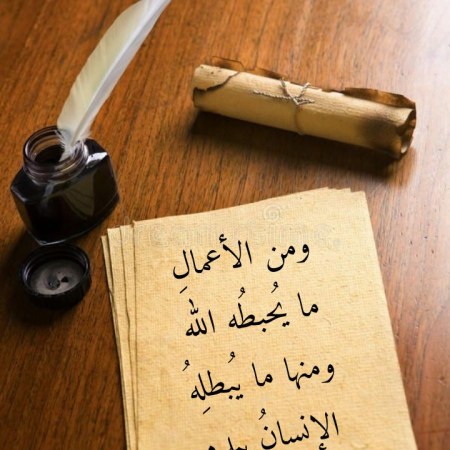 ومن الأعمالِ
ما يُحبطُه الله
ومنها ما يُبطلِهُ
الإنسانُ